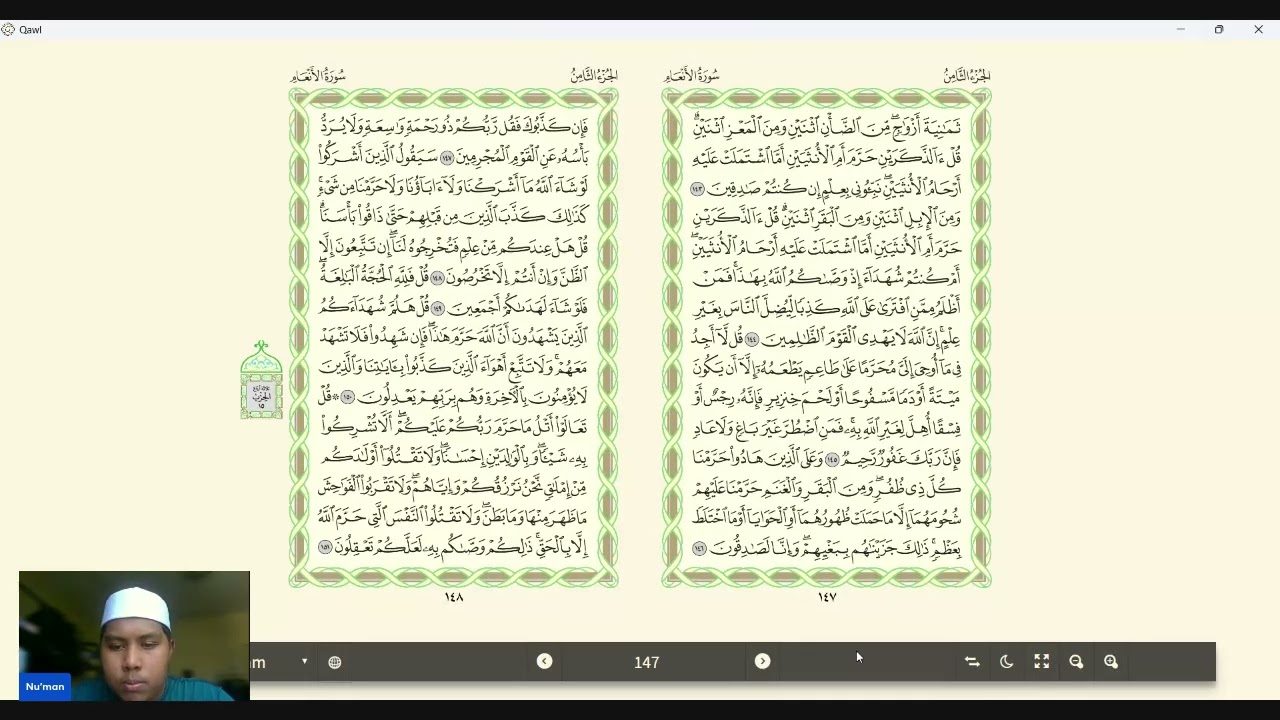 Qawl
الجُزْءُ الثَّامِنُ
سُورَةُ الأَنْعَامِ
ثَمَٰنِيَةَ أَزْوَٰجٖۖ مِّنَ ٱلضَّأۡنِ ٱثۡنَيۡنِ وَمِنَ ٱلۡمَعۡزِ ٱثۡنَيۡنِۗ
قُلۡ ءَآلذَّكَرَيۡنِ حَرَّمَ أَمِ ٱلۡأُنثَيَيۡنِ أَمَّا ٱشۡتَمَلَتۡ عَلَيۡهِ
أَرۡحَامُ ٱلۡأُنثَيَيۡنِۖ نَبِّـُٔونِي بِعِلۡمٍ إِن كُنتُمۡ صَٰدِقِينَ ١٤٣
وَمِنَ ٱلۡإِبِلِ ٱثۡنَيۡنِ وَمِنَ ٱلۡبَقَرِ ٱثۡنَيۡنِۗ قُلۡ ءَآلذَّكَرَيۡنِ
حَرَّمَ أَمِ ٱلۡأُنثَيَيۡنِ أَمَّا ٱشۡتَمَلَتۡ عَلَيۡهِ أَرۡحَامُ ٱلۡأُنثَيَيۡنِۖ
أَمۡ كُنتُمۡ شُهَدَآءَ إِذۡ وَصَّىٰكُمُ ٱللَّهُ بِهَٰذَاۚ فَمَنۡ
أَظۡلَمُ مِمَّنِ ٱفۡتَرَىٰ عَلَى ٱللَّهِ كَذِبٗا لِّيُضِلَّ ٱلنَّاسَ بِغَيۡرِ
عِلۡمٍۚ إِنَّ ٱللَّهَ لَا يَهۡدِي ٱلۡقَوۡمَ ٱلظَّٰلِمِينَ ١٤٤ قُل لَّآ أَجِدُ
فِي مَآ أُوحِيَ إِلَيَّ مُحَرَّمًا عَلَىٰ طَاعِمٖ يَطۡعَمُهُۥٓ إِلَّآ أَن يَكُونَ
مَيۡتَةً أَوۡ دَمٗا مَّسۡفُوحًا أَوۡ لَحۡمَ خِنزِيرٖ فَإِنَّهُۥ رِجۡسٌ أَوۡ
فِسۡقًا أُهِلَّ لِغَيۡرِ ٱللَّهِ بِهِۦۚ فَمَنِ ٱضۡطُرَّ غَيۡرَ بَاغٖ وَلَا عَادٖ
فَإِنَّ رَبَّكَ غَفُورٞ رَّحِيمٞ ١٤٥ وَعَلَى ٱلَّذِينَ هَادُواْ حَرَّمۡنَا
كُلَّ ذِي ظُفُرٖۖ وَمِنَ ٱلۡبَقَرِ وَٱلۡغَنَمِ حَرَّمۡنَا عَلَيۡهِمۡ
شُحُومَهُمَآ إِلَّا مَا حَمَلَتۡ ظُهُورُهُمَآ أَوِ ٱلۡحَوَايَآ أَوۡ مَا ٱخۡتَلَطَ
بِعَظۡمٖۚ ذَٰلِكَ جَزَيۡنَٰهُم بِبَغۡيِهِمۡۖ وَإِنَّا لَصَٰدِقُونَ ١٤٦
١٤٧
الجُزْءُ الثَّامِنُ
سُورَةُ الأَنْعَامِ
فَإِن كَذَّبُوكَ فَقُل رَّبُّكُمۡ ذُو رَحۡمَةٖ وَٰسِعَةٖ وَلَا يُرَدُّ
بَأۡسُهُۥ عَنِ ٱلۡقَوۡمِ ٱلۡمُجۡرِمِينَ ١٤٧ سَيَقُولُ ٱلَّذِينَ أَشۡرَكُواْ
لَوۡ شَآءَ ٱللَّهُ مَآ أَشۡرَكۡنَا وَلَآ ءَابَآؤُنَا وَلَا حَرَّمۡنَا مِن شَيۡءٖۚ
كَذَٰلِكَ كَذَّبَ ٱلَّذِينَ مِن قَبۡلِهِمۡ حَتَّىٰ ذَاقُواْ بَأۡسَنَاۗ
قُلۡ هَلۡ عِندَكُم مِّنۡ عِلۡمٖ فَتُخۡرِجُوهُ لَنَآۖ إِن تَتَّبِعُونَ إِلَّا
ٱلظَّنَّ وَإِنۡ أَنتُمۡ إِلَّا تَخۡرُصُونَ ١٤٨ قُلۡ فَلِلَّهِ ٱلۡحُجَّةُ ٱلۡبَٰلِغَةُۖ
فَلَوۡ شَآءَ لَهَدَىٰكُمۡ أَجۡمَعِينَ ١٤٩ قُلۡ هَلُمَّ شُهَدَآءَكُمُ
ٱلَّذِينَ يَشۡهَدُونَ أَنَّ ٱللَّهَ حَرَّمَ هَٰذَاۖ فَإِن شَهِدُواْ فَلَا تَشۡهَدۡ
مَعَهُمۡۚ وَلَا تَتَّبِعۡ أَهۡوَآءَ ٱلَّذِينَ كَذَّبُواْ بِـَٔايَٰتِنَا وَٱلَّذِينَ
لَا يُؤۡمِنُونَ بِٱلۡأٓخِرَةِ وَهُم بِرَبِّهِمۡ يَعۡدِلُونَ ١٥٠ ۞ قُلۡ
تَعَالَوۡاْ أَتۡلُ مَا حَرَّمَ رَبُّكُمۡ عَلَيۡكُمۡۖ أَلَّا تُشۡرِكُواْ
بِهِۦ شَيۡـٔٗاۖ وَبِٱلۡوَٰلِدَيۡنِ إِحۡسَٰنٗاۖ وَلَا تَقۡتُلُوٓاْ أَوۡلَٰدَكُم
مِّنۡ إِمۡلَٰقٖ نَّحۡنُ نَرۡزُقُكُمۡ وَإِيَّاهُمۡۖ وَلَا تَقۡرَبُواْ ٱلۡفَوَٰحِشَ
مَا ظَهَرَ مِنۡهَا وَمَا بَطَنَۖ وَلَا تَقۡتُلُواْ ٱلنَّفۡسَ ٱلَّتِي حَرَّمَ ٱللَّهُ
إِلَّا بِٱلۡحَقِّۚ ذَٰلِكُمۡ وَصَّىٰكُم بِهِۦ لَعَلَّكُمۡ تَعۡقِلُونَ ١٥١
١٤٨
الحِزْبُ
١٥
147
Nu'man